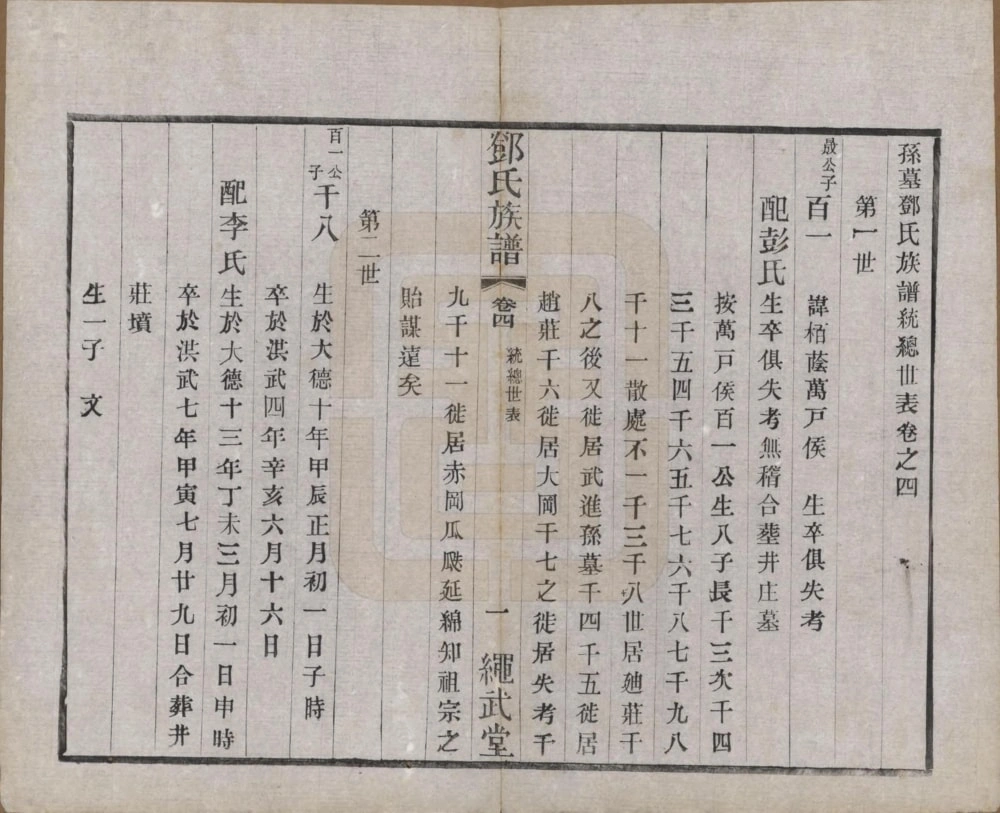 孫墓鄧氏族譜統總世表卷之四
第一世
晸公子百一 諱栢蔭萬戸侯 生卒俱失考
配彭氏生卒俱失考無稽合塟井庄墓
按萬戸侯百一公生八子長千三次千四
三千五四千六五千七六千八七千九八
千十一散處不一千三千八世居廸莊千
八之後又徙居武進孫墓千四千五徙居
趙莊千六徙居大岡千七之徙居失考千
九千十一徙居赤岡瓜瓞延綿知祖宗之
貽謀逺矣
第二世
百一公子千八 生於大德十年甲辰正月初一日子時
卒於洪武四年辛亥六月十六日
配李氏生於大德十三年丁未三月初一日申時
卒於洪武七年甲寅七月廿九日合葬井
莊墳
生一子 文
鄧氏族譜 卷四 統總世表 一 繩武堂